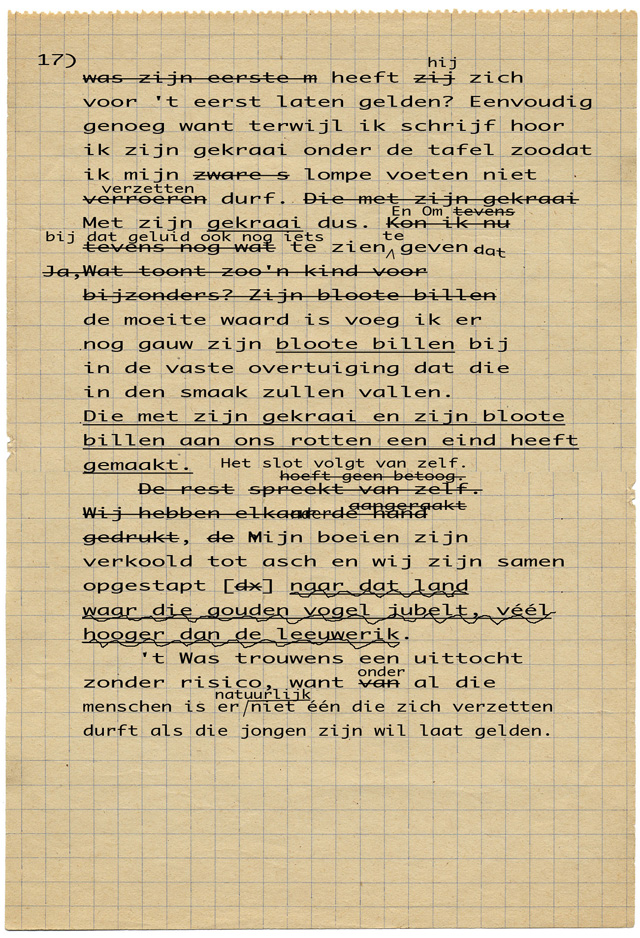 17)
hij
was zijn eerste m heeft zij zich
voor 't eerst laten gelden? Eenvoudig
genoeg want terwijl ik schrijf hoor
ik zijn gekraai onder de tafel zoodat
ik mijn zware s lompe voeten niet
verzetten
verroeren durf. Die met zijn gekraai
En Om tevens
Met zijn gekraai dus. Kon ik nu
bij dat geluid ook nog iets te
tevens nog wat te zien geven dat
Ja, Wat toont zoo'n kind voor
bijzonders? Zijn bloote billen
de moeite waard is voeg ik er
nog gauw zijn bloote billen bij
in de vaste overtuiging dat die
in den smaak zullen vallen.
Die met zijn gekraai en zijn bloote
billen aan ons rotten een eind heeft
gemaakt. Het slot volgt van zelf.
hoeft geen betoog.
De rest spreekt van zelf.
aangeraakt
Wij hebben elkander de hand
gedrukt, de Mijn boeien zijn
verkoold tot asch en wij zijn samen
opgestapt [dx] naar dat land
waar die gouden vogel jubelt, véél
hooger dan de leeuwerik.
't Was trouwens een uittocht
onder
zonder risico, want van al die
natuurlijk
menschen is er/niet één die zich verzetten
durft als die jongen zijn wil laat gelden.